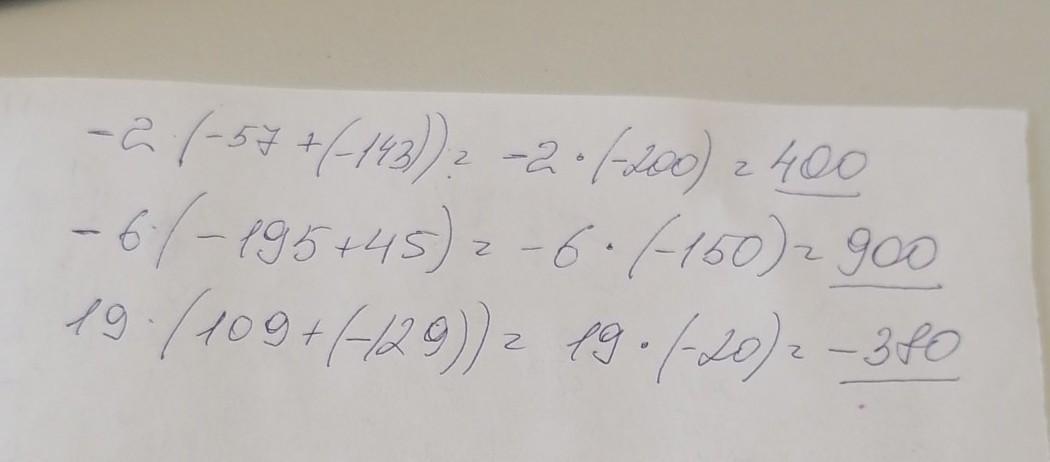 -2·(-57+(-143))= -2·(-200)=400
-6·(-195+45)= -6·(-150)=900
19·(109+(-129))= 19·(-20)=-380